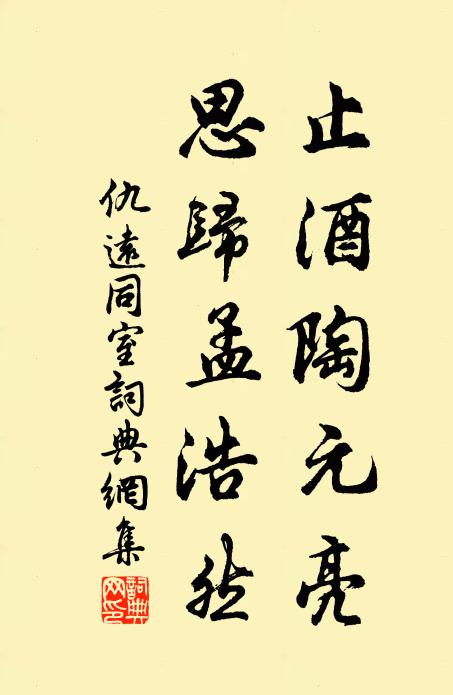 止酒陶元亮
思歸孟浩然
仇遠同室詞典網集
詞典網印